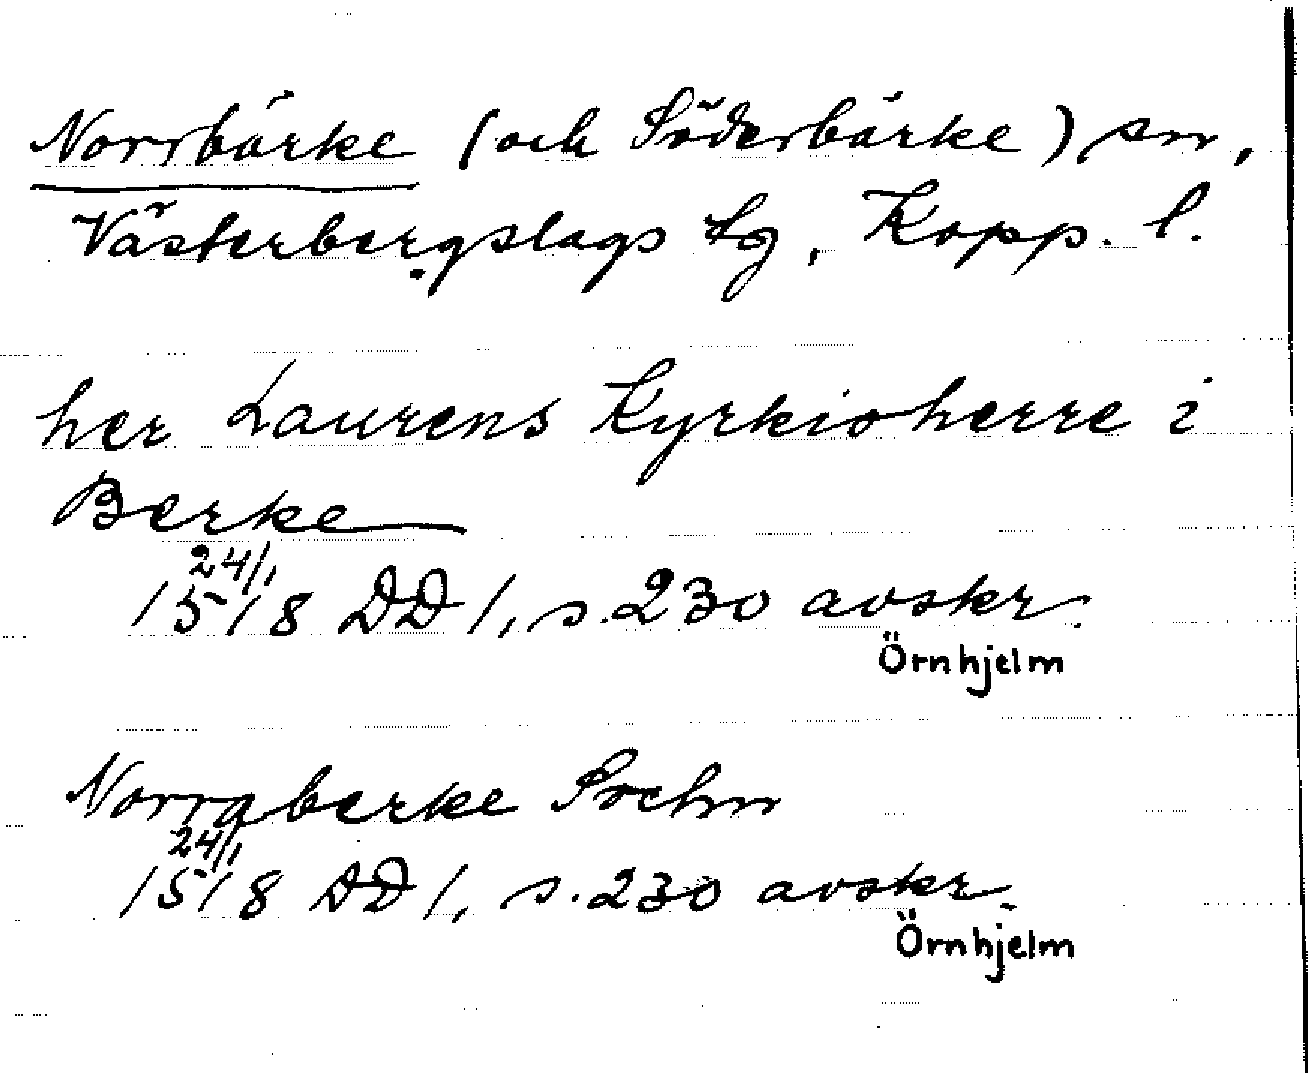 Norrbärke (och Söderbärke) sn,
Västerbergslags Lg, Kopp. l.
her Laurens Kyrkioherre i
Berke
24/1
1518 DD 1, s. 230 avskr.
Örnhjelm
Norraberke Sochn
24/1
1518 DD 1, s. 230 avskr.
Örnhjelm